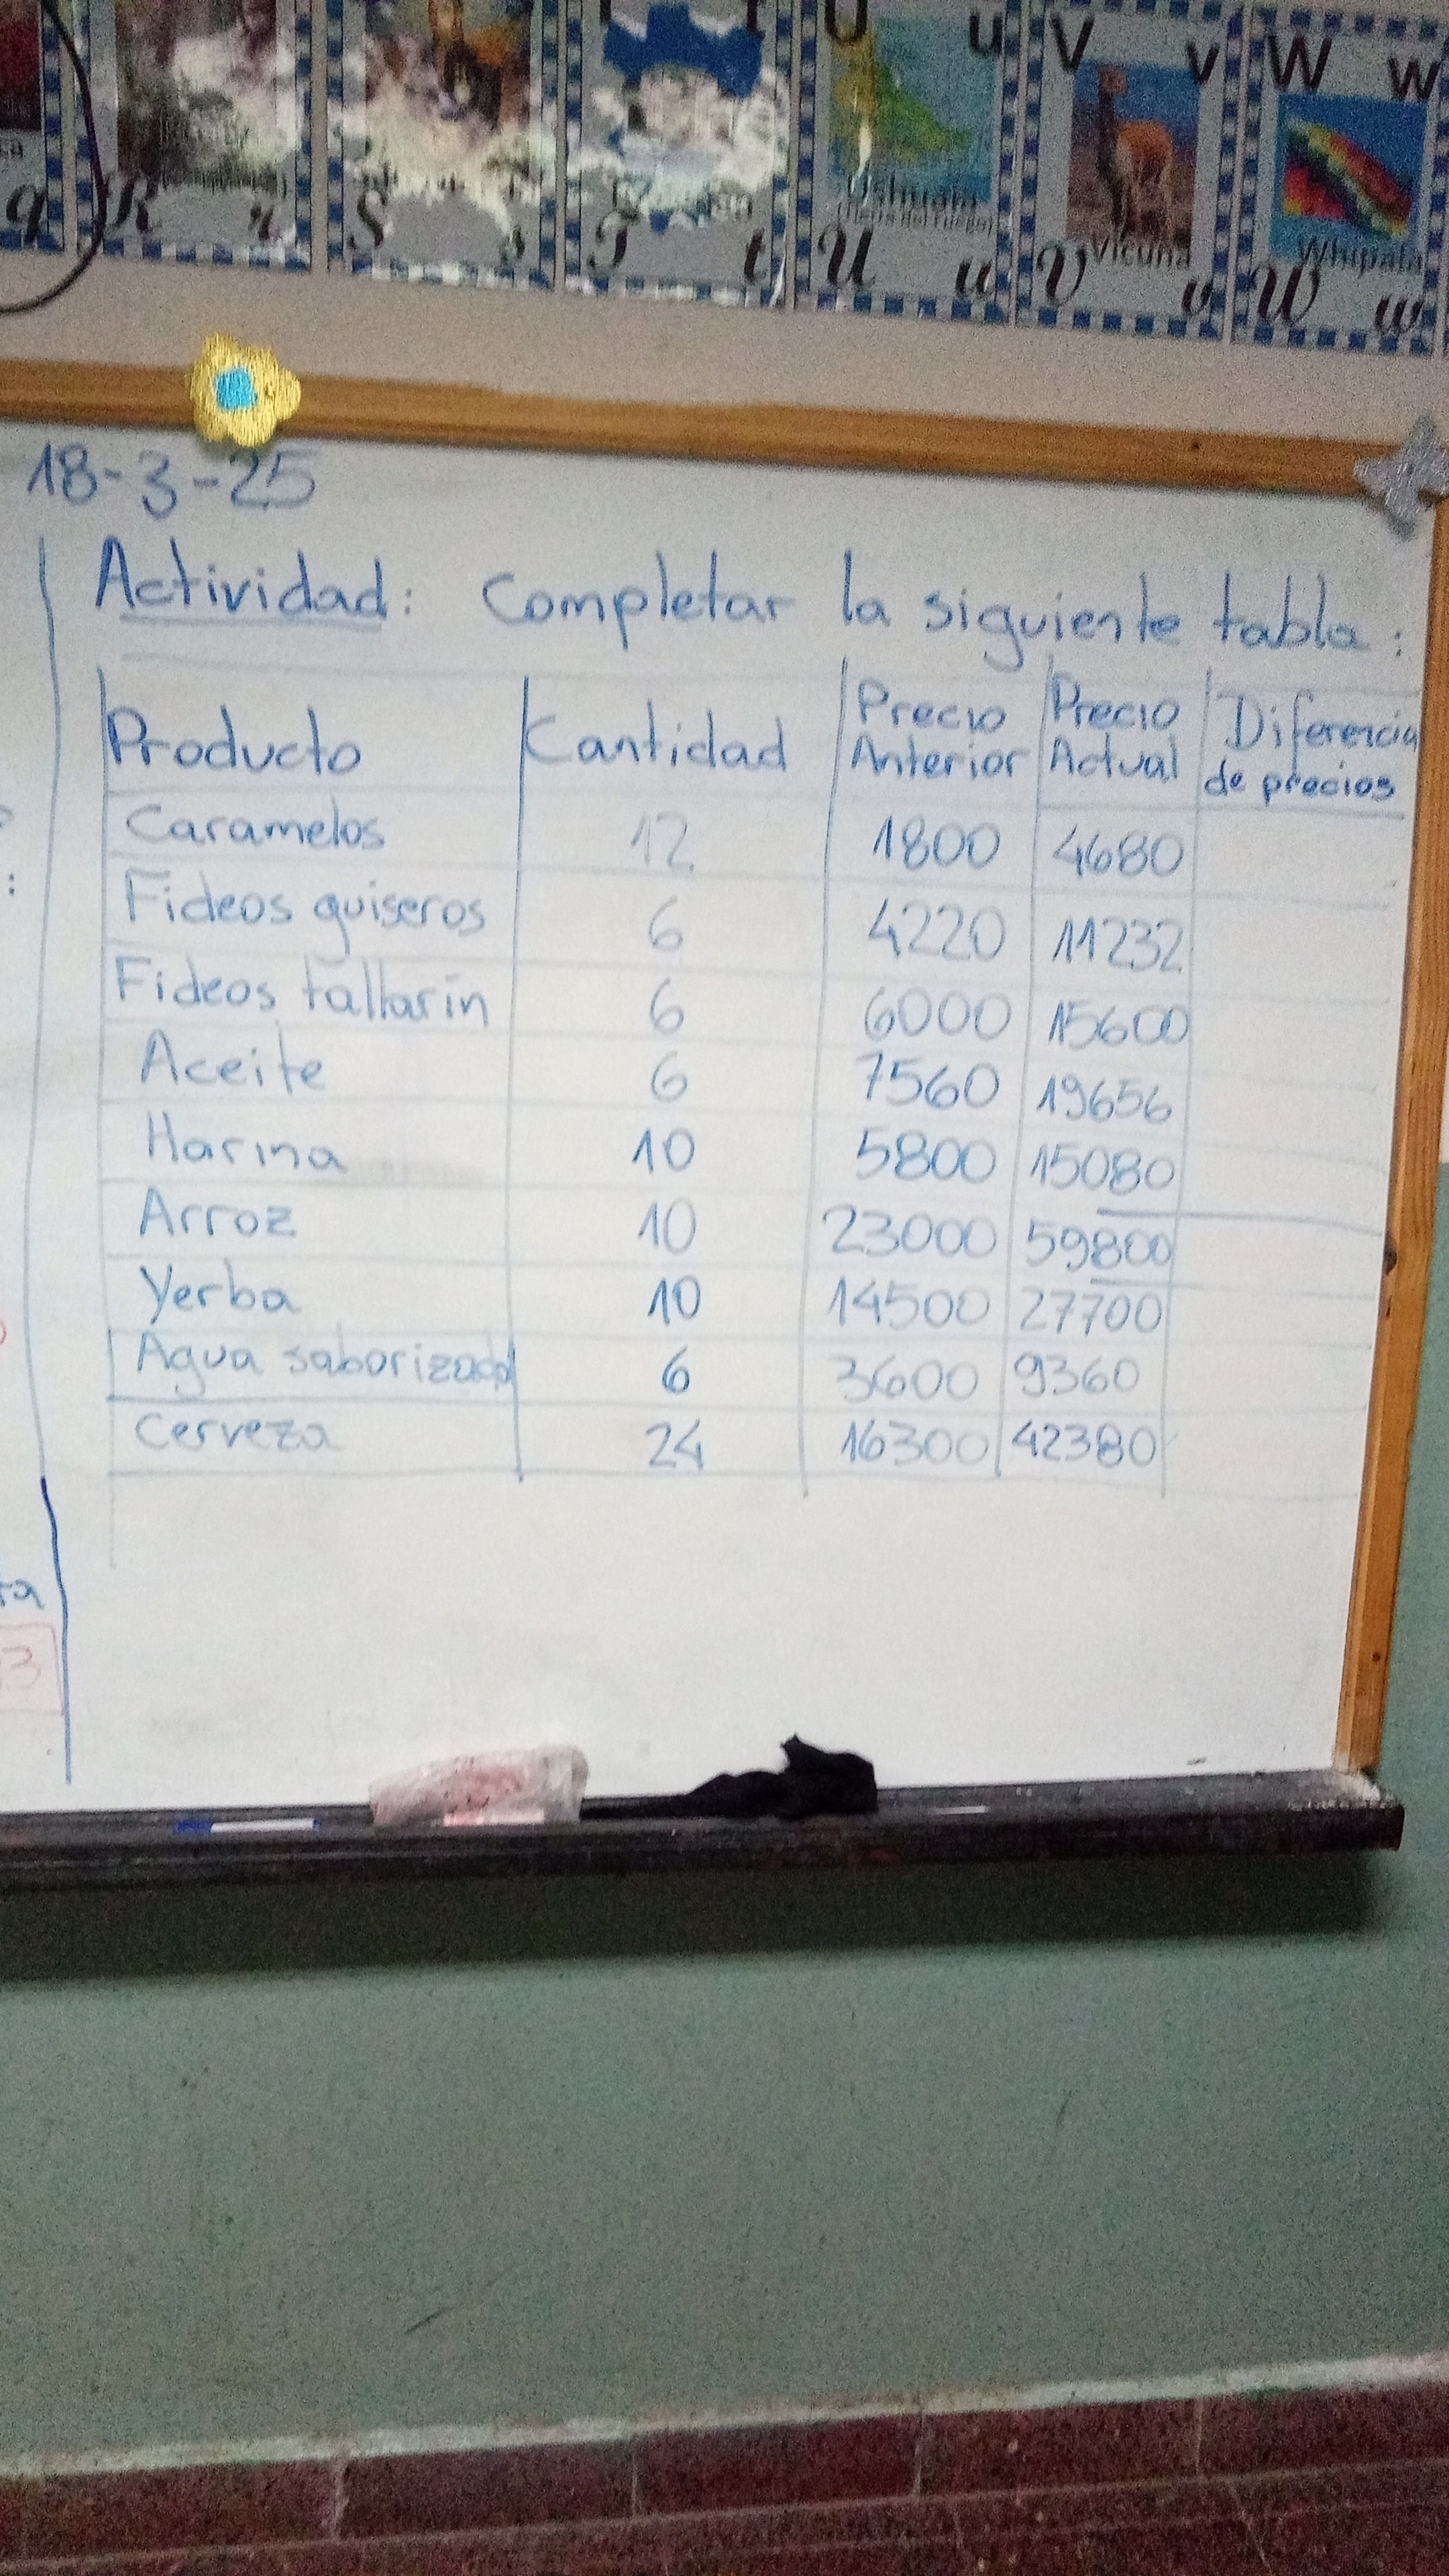 U u V v W w
Ushuaia
(Tierra del Fuego)
Vicuña
Whipala
q R r S s T t U u V v W w
18-3-25
Actividad: Completar la siguiente tabla:
Producto Cantidad Precio Anterior Precio Actual Diferencia de precios
Caramelos 12 1800 4680
Fideos guiseros 6 4220 11232
Fideos tallarin 6 6000 15600
Aceite 6 7560 19656
Harina 10 5800 15080
Arroz 10 23000 59800
Yerba 10 14500 27700
Agua saborizada 6 3600 9360
Cerveza 24 16300 42380
ta
3